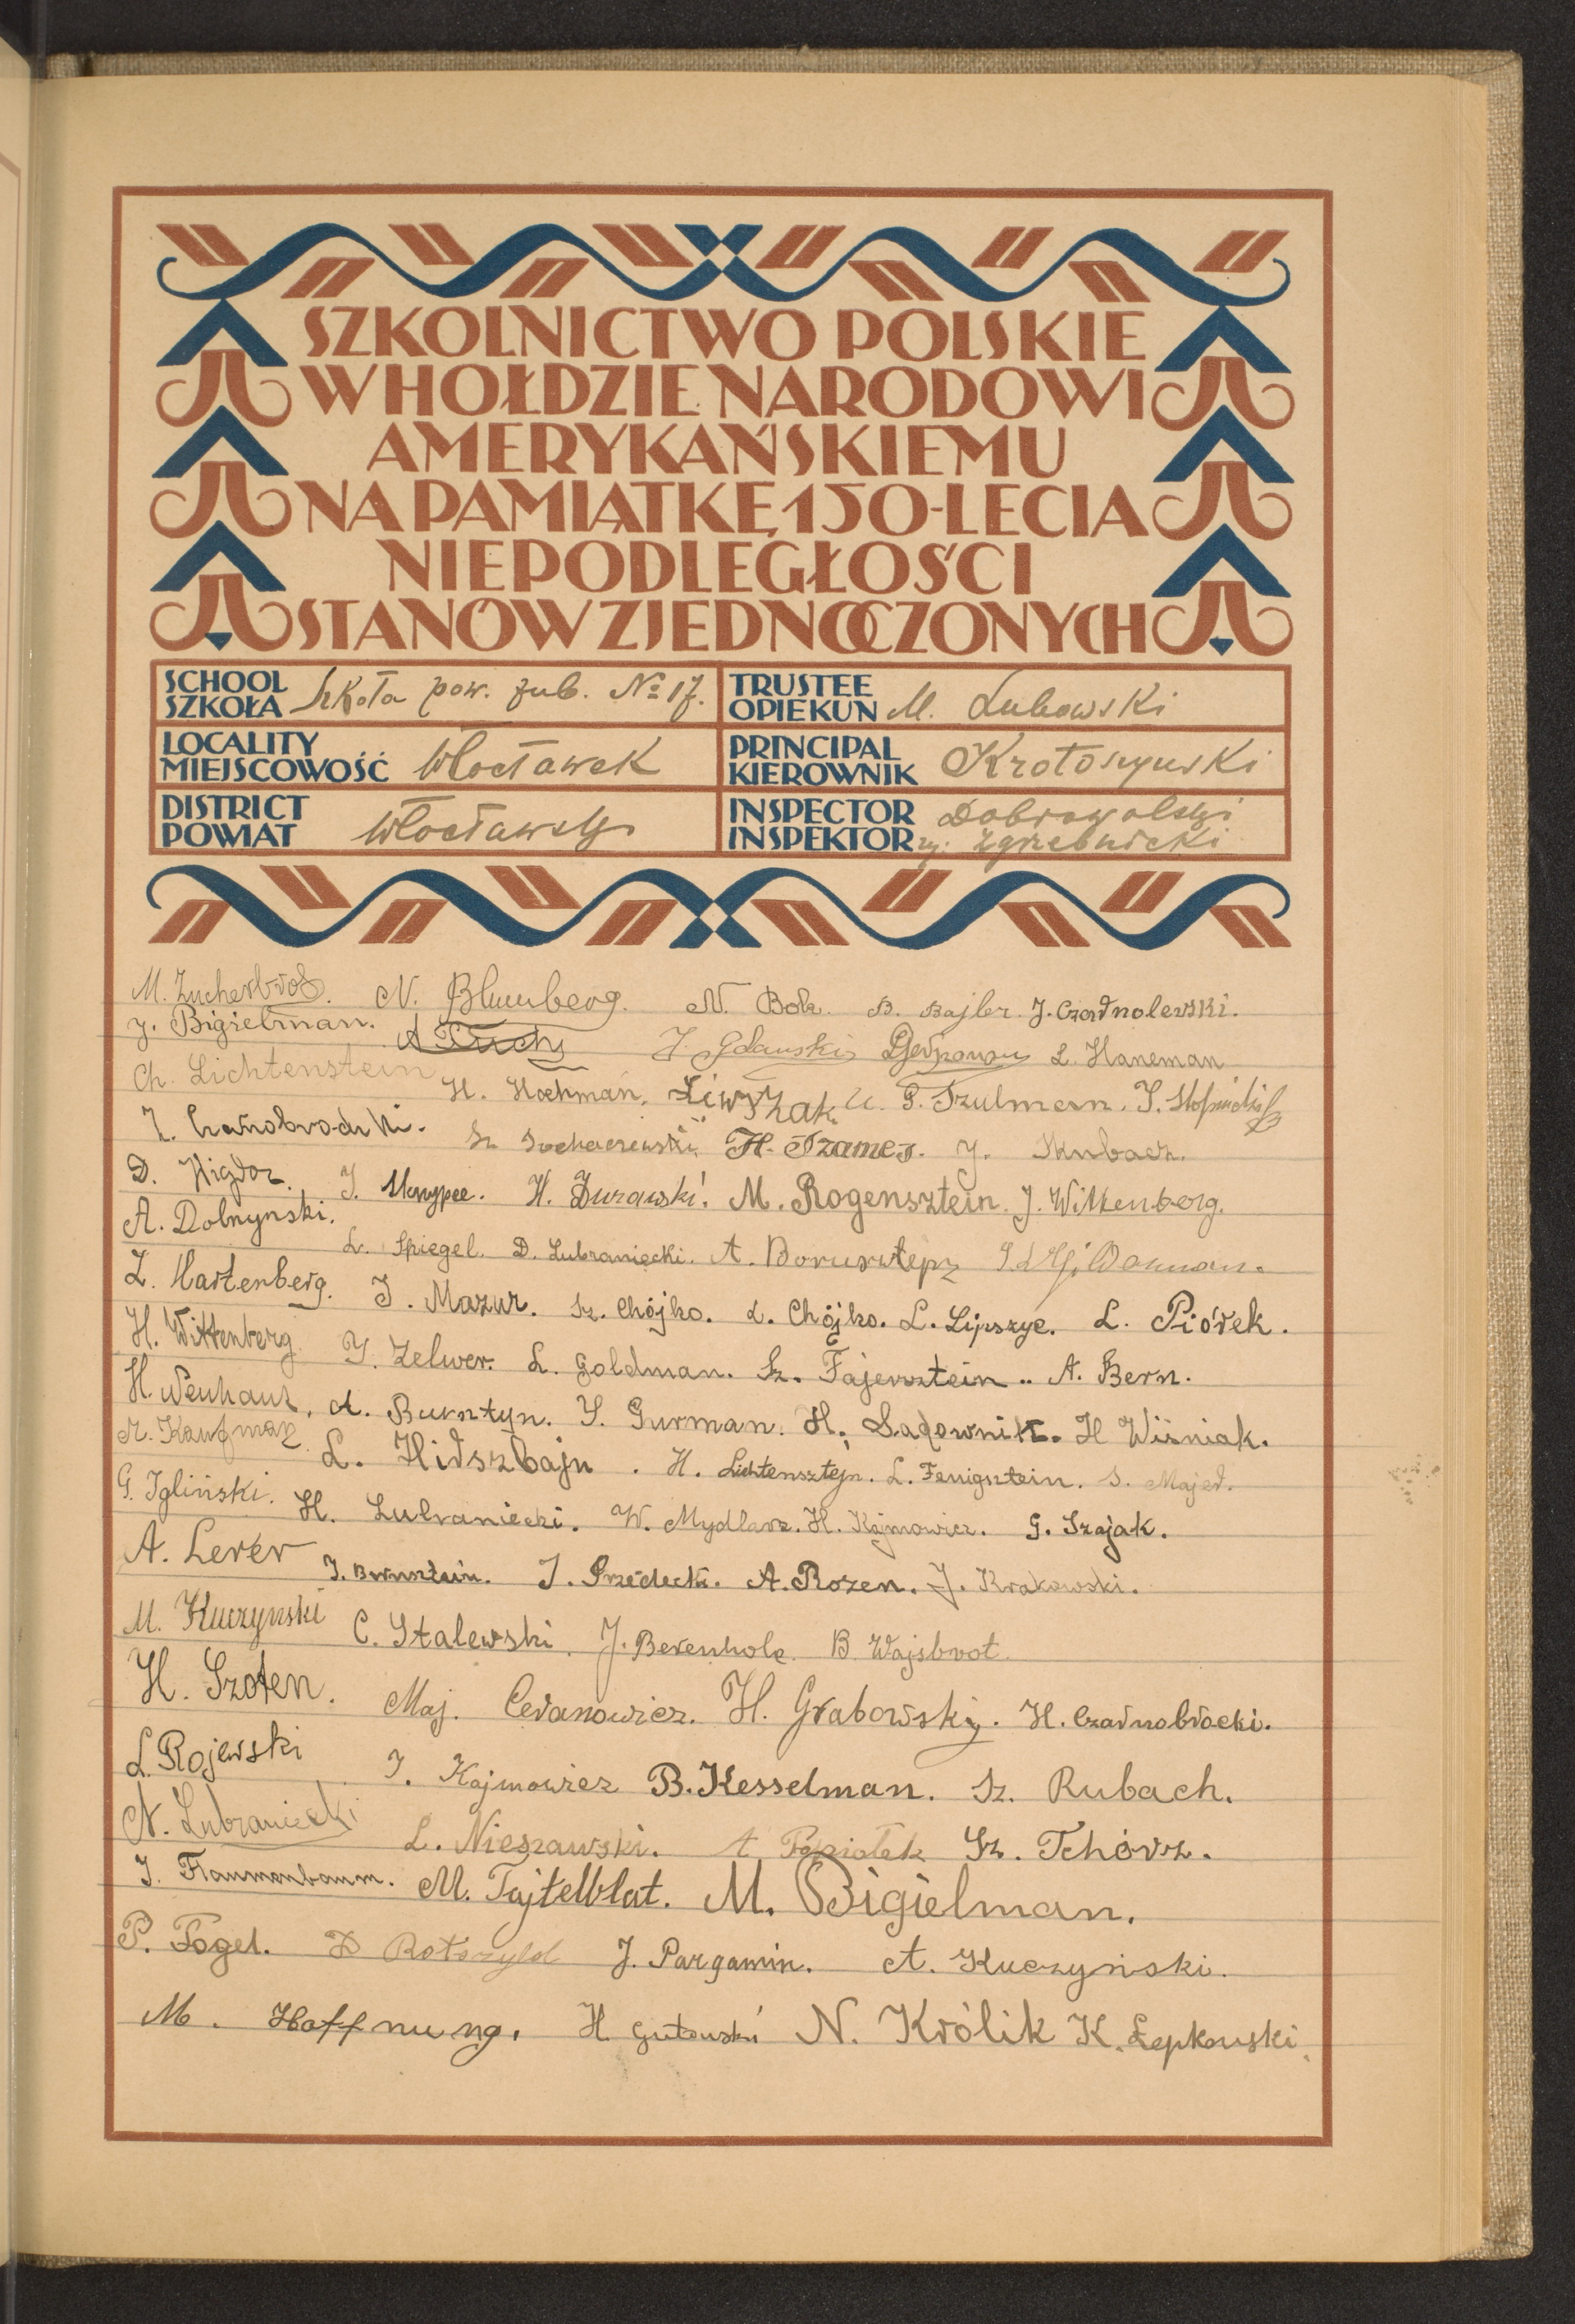 SZKOLNICTWO POLSKIE
W HOŁDZIE NARODOWI
AMERYKAŃSKIEMU
NA PAMIĄTKĘ 150-LECIA
NIEPODLEGŁOŚCI
STANÓW ZJEDNOCZONYCH
SCHOOL
SZKOŁA Szkoła pow. pub. № 17.
TRUSTEE
OPIEKUN M. Lubowski
LOCALITY
MIEJSCOWOŚĆ Włocławek
PRINCIPAL
KIEROWNIK Krotoszyński
DISTRICT
POWIAT Włocławski
INSPECTOR Dobrowolski
INSPEKTOR Zgrzebnicki
M. Zucherbrot. N. Blumberg. N. Bok. B. Bajler. J. Czarnolewski.
J. Bigielman. J. Gdanski L. Haneman
Ch. Lichtenstein H. Hochman. Liwszak U. G. Szulman. J.
Sz. Sochaczewski H. Szames. J. Skubacz.
D. Higdor. J. H. Żurawski. M. Rogensztein. J. Wittenberg.
A. Dobrynski. L. Spiegel. D. Lubraniecki. A.
L. Hartenberg. J. Mazur. Sz. Chójko. L. Chójko. L. Lipszyc. L. Piórek.
H. Wittenberg. Y. Zelwer. L. Goldman. Sz. Fajersztein.. A. Bern.
H. Neuhaus. A. Bursztyn. Y. Gurman. H. Sadownik. H Wiśniak.
M. Kaufman. L. Hirszbajn. H. Lichtensztejn. L. Fenigsztein. S. Majer.
G. Igliński. H. Lubraniecki. W. Mydlarz. H. Kajmowicz. G. Szajak.
A. Lerer J. Bernsztein. J. Grzedecki. A. Rozen. J. Krakowski.
M. Kuczynski C. Stalewski. J. Berenholc. B. Wajsbrot.
H. Szoten. Maj. Ceranowicz. H. Grabowski. H. Czarnobrocki.
L. Rojewski J. Kajmowicz B. Kesselman. Sz. Rubach.
N. Lubraniecki L. Nieszawski. A Popiołek Sz. Tchórz.
J. Flaumenbaum. M. Tajtelblat. M. Bigielman.
P. Fogel. D Rotszyld J. Pargamin. A. Kuczyński.
M. Hoffnung. H. Gutowski N. Królik K. Lepkowski.